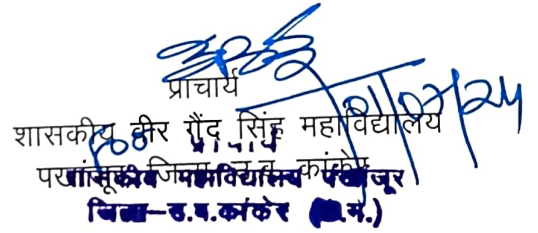 प्राचार्य
शासकीय वीर गैंद सिंह महाविद्यालय
पखांजूर जिला-उ.ब. कांकेर
प्राचार्य
शासकीय महाविद्यालय पखांजूर
जिला-उ.ब.कांकेर (छ.ग.)